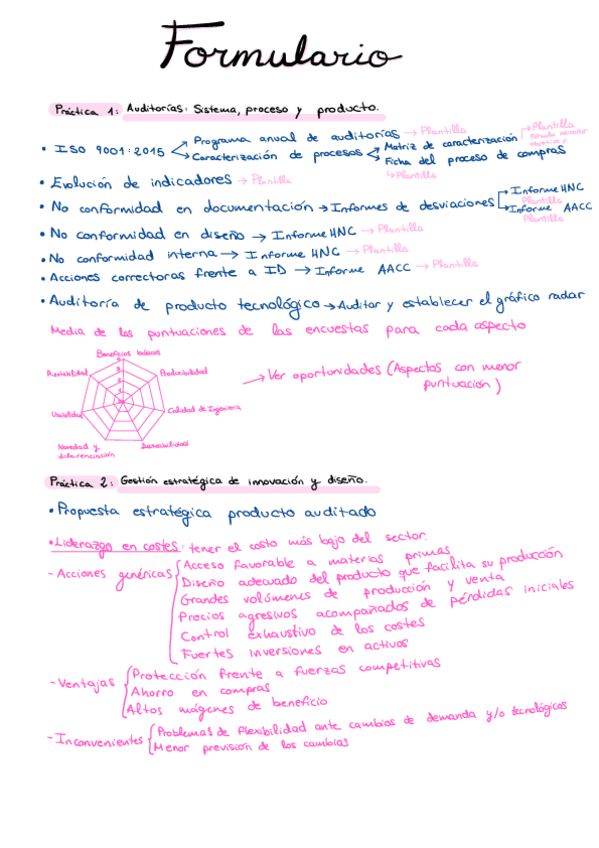 Formulario
Práctica 1: Auditorías: Sistema, proceso y producto.
• ISO 9001:2015
Programa anual de auditorías → Plantilla
Caracterización de procesos
→ Plantilla
Matriz de caracterización
→ Plantilla
Ficha del proceso de compras
↳ Plantilla
• Evolución de indicadores → Plantilla
• No conformidad en documentación → Informes de desviaciones
Informe HNC
Plantilla
Informe AACC
Plantilla
• No conformidad en diseño → Informe HNC → Plantilla
• No conformidad interna → Informe HNC → Plantilla
• Acciones correctoras frente a ID → Informe AACC → Plantilla
• Auditoría de producto tecnológico → Auditar y establecer el gráfico radar
Media de las puntuaciones de las encuestas para cada aspecto
Beneficios básicos
Rentabilidad
Producibilidad
Usabilidad
Calidad de Ingeniería
Novedad y
diferenciación
Deseabilidad
→ Ver oportunidades (Aspectos con menor
puntuación)
Práctica 2: Gestión estratégica de innovación y diseño.
• Propuesta estratégica producto auditado
• Liderazgo en costes: tener el costo más bajo del sector.
- Acciones genéricas
Acceso favorable a materias primas
Diseño adecuado del producto que facilita su producción
Grandes volúmenes de producción y venta
Precios agresivos acompañados de pérdidas iniciales
Control exhaustivo de los costes
Fuertes inversiones en activos
- Ventajas
Protección frente a fuerzas competitivas
Ahorro en compras
Altos márgenes de beneficio
- Inconvenientes
Problemas de flexibilidad ante cambios de demanda y/o tecnológicos
Menor previsión de los cambios